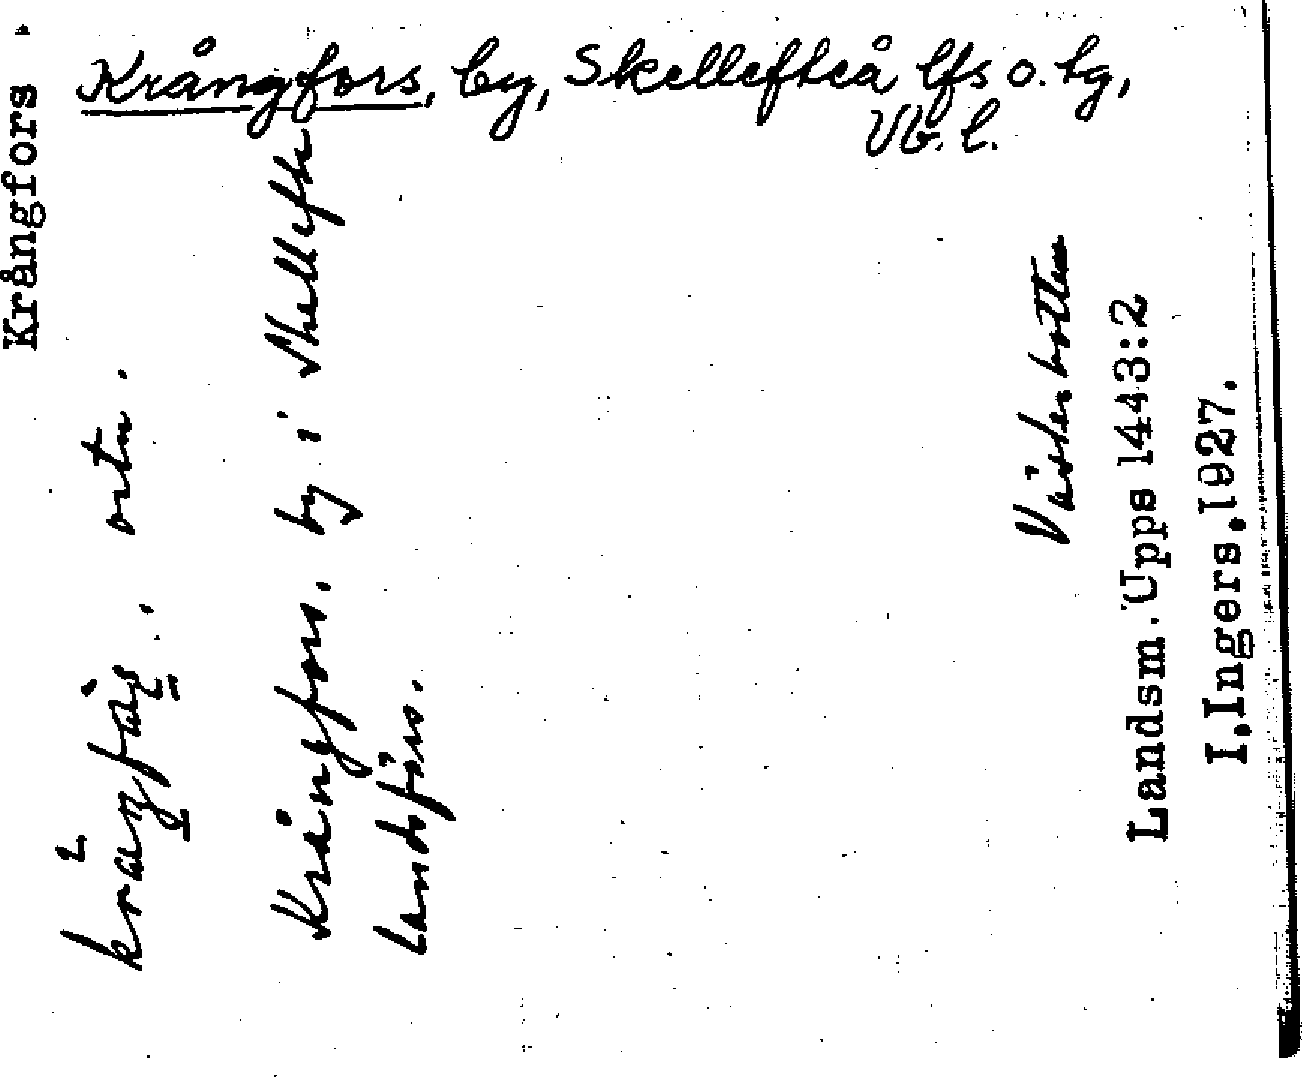 Krångfors, by, Skellefteå lfs o. tg,
Vb. l.
Krångfors
ortn.
Krångfors. by i Skellefte
Landsförs.
Västerbotten
Landsm.Upps 1443:2
I.Ingers.1927.